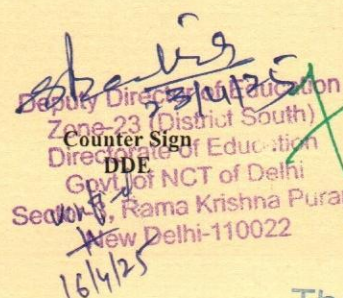 23/4/25
Deputy Director of Education
Zone-23 (District South)
Counter Sign
Directorate of Education
DDE
Govt. of NCT of Delhi
Rama Krishna Puram
New Delhi-110022
16/4/25
Th